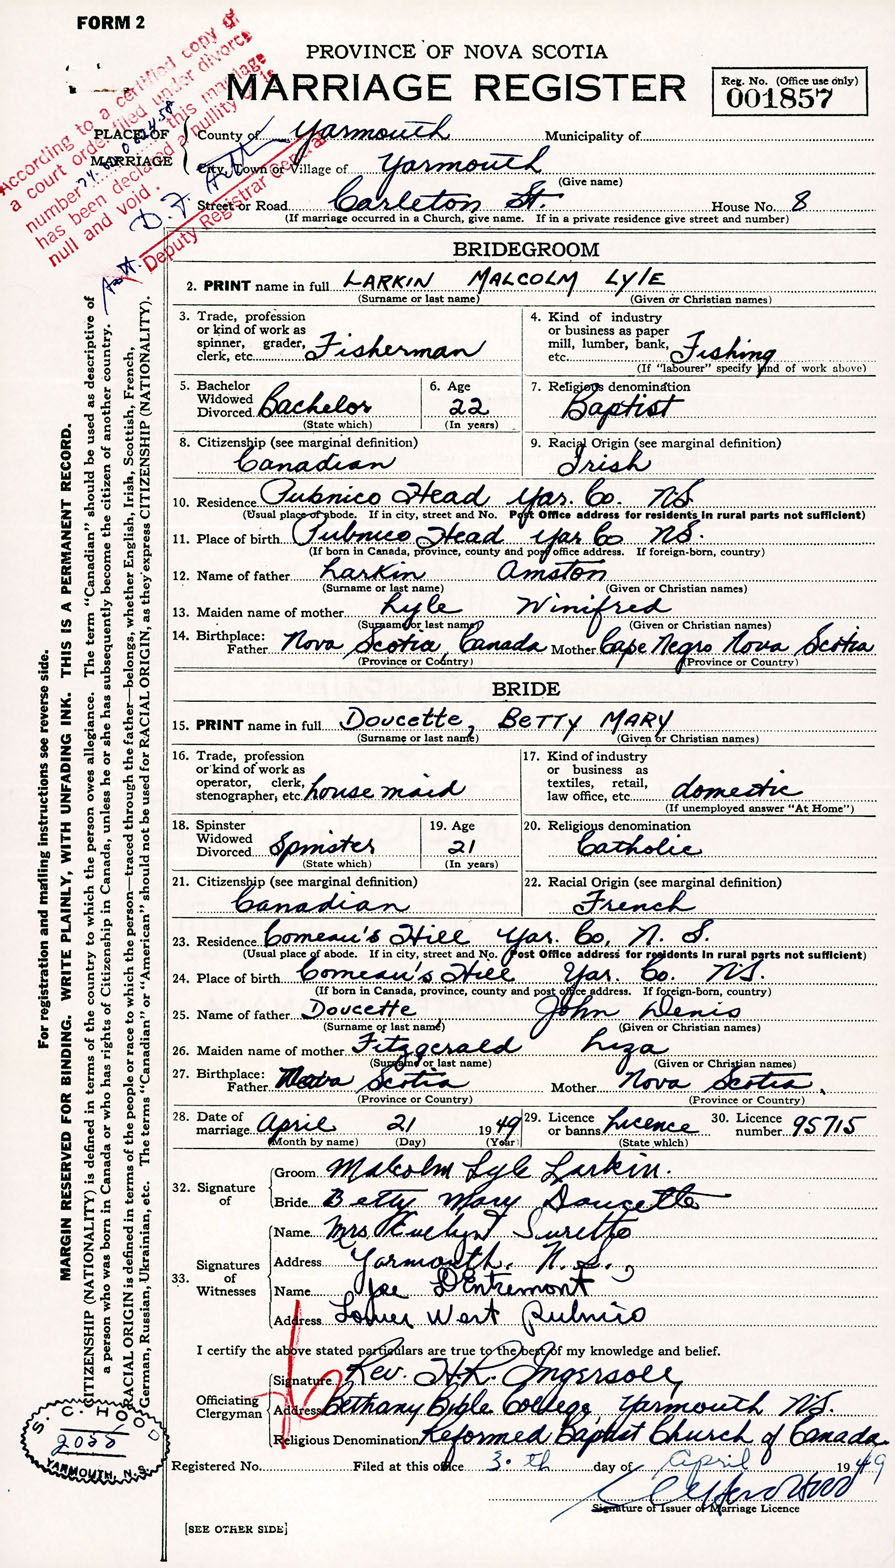 FORM 2
According to a certified copy of
a court order filed under divorce
number 74- this marriage
has been declared a nullity &
null and void.
D. F.
Deputy Registrar General
PROVINCE OF NOVA SCOTIA
MARRIAGE REGISTER
Reg. No. (Office use only)
001857
PLACE OF MARRIAGE
County of Yarmouth Municipality of
City, Town or Village of Yarmouth
(Give name)
Street or Road Carleton St. House No. 8
(If marriage occurred in a Church, give name. If in a private residence give street and number)
BRIDEGROOM
2. PRINT name in full LARKIN MALCOLM LYLE
(Surname or last name) (Given or Christian names)
3. Trade, profession
or kind of work as
spinner, grader,
clerk, etc. Fisherman
4. Kind of industry
or business as paper
mill, lumber, bank,
etc. Fishing
(If "labourer" specify kind of work above)
5. Bachelor
Widowed
Divorced Bachelor
(State which)
6. Age
22
(In years)
7. Religious denomination
Baptist
8. Citizenship (see marginal definition)
Canadian
9. Racial Origin (see marginal definition)
Irish
10. Residence Pubnico Head Yar. Co. N.S.
(Usual place of abode. If in city, street and No. Post Office address for residents in rural parts not sufficient)
11. Place of birth Pubnico Head Yar Co N.S.
(If born in Canada, province, county and post office address. If foreign-born, country)
12. Name of father Larkin Amston
(Surname or last name) (Given or Christian names)
13. Maiden name of mother Lyle Winifred
(Surname or last name) (Given or Christian names)
14. Birthplace:
Father Nova Scotia, Canada Mother Cape Negro Nova Scotia
(Province or Country) (Province or Country)
BRIDE
15. PRINT name in full Doucette, BETTY MARY
(Surname or last name) (Given or Christian names)
16. Trade, profession
or kind of work as
operator, clerk,
stenographer, etc. house maid
17. Kind of industry
or business as
textiles, retail,
law office, etc. domestic
(If unemployed answer "At Home")
18. Spinster
Widowed
Divorced Spinster
(State which)
19. Age
21
(In years)
20. Religious denomination
Catholic
21. Citizenship (see marginal definition)
Canadian
22. Racial Origin (see marginal definition)
French
23. Residence Comeau's Hill Yar. Co, N. S.
(Usual place of abode. If in city, street and No. Post Office address for residents in rural parts not sufficient)
24. Place of birth Comeau's Hill Yar. Co. N.S.
(If born in Canada, province, county and post office address. If foreign-born, country)
25. Name of father Doucette John Denis
(Surname or last name) (Given or Christian names)
26. Maiden name of mother Fitzgerald Liza
(Surname or last name) (Given or Christian names)
27. Birthplace:
Father Nova Scotia Mother Nova Scotia
(Province or Country) (Province or Country)
28. Date of
marriage April 21 1949
(Month by name) (Day) (Year)
29. Licence
or banns Licence
(State which)
30. Licence
number 95715
32. Signature of
Groom Malcolm Lyle Larkin.
Bride Betty Mary Doucette
33. Signatures of Witnesses
Name Mrs. Evelyn Surette
Address Yarmouth, N. S.,
Name Joe D'Entremont
Address Lower West Pubnico
I certify the above stated particulars are true to the best of my knowledge and belief.
Officiating Clergyman
Signature Rev. H.R. Ingersoll,
Address Bethany Bible College, Yarmouth N.S.
Religious Denomination Reformed Baptist Church of Canada
Registered No. Filed at this office 30th day of April 1949
Signature of Issuer of Marriage Licence
[SEE OTHER SIDE]
For registration and mailing instructions see reverse side.
MARGIN RESERVED FOR BINDING. WRITE PLAINLY, WITH UNFADING INK. THIS IS A PERMANENT RECORD.
CITIZENSHIP (NATIONALITY) is defined in terms of the country to which the person owes allegiance. The term "Canadian" should be used as descriptive of
a person who was born in Canada or who has rights of Citizenship in Canada, unless he or she has subsequently become the citizen of another country.
RACIAL ORIGIN is defined in terms of the people or race to which the person—traced through the father—belongs, whether English, Irish, Scottish, French,
German, Russian, Ukrainian, etc. The terms "Canadian" or "American" should not be used for RACIAL ORIGIN, as they express CITIZENSHIP (NATIONALITY).
YARMOUTH, N.S.